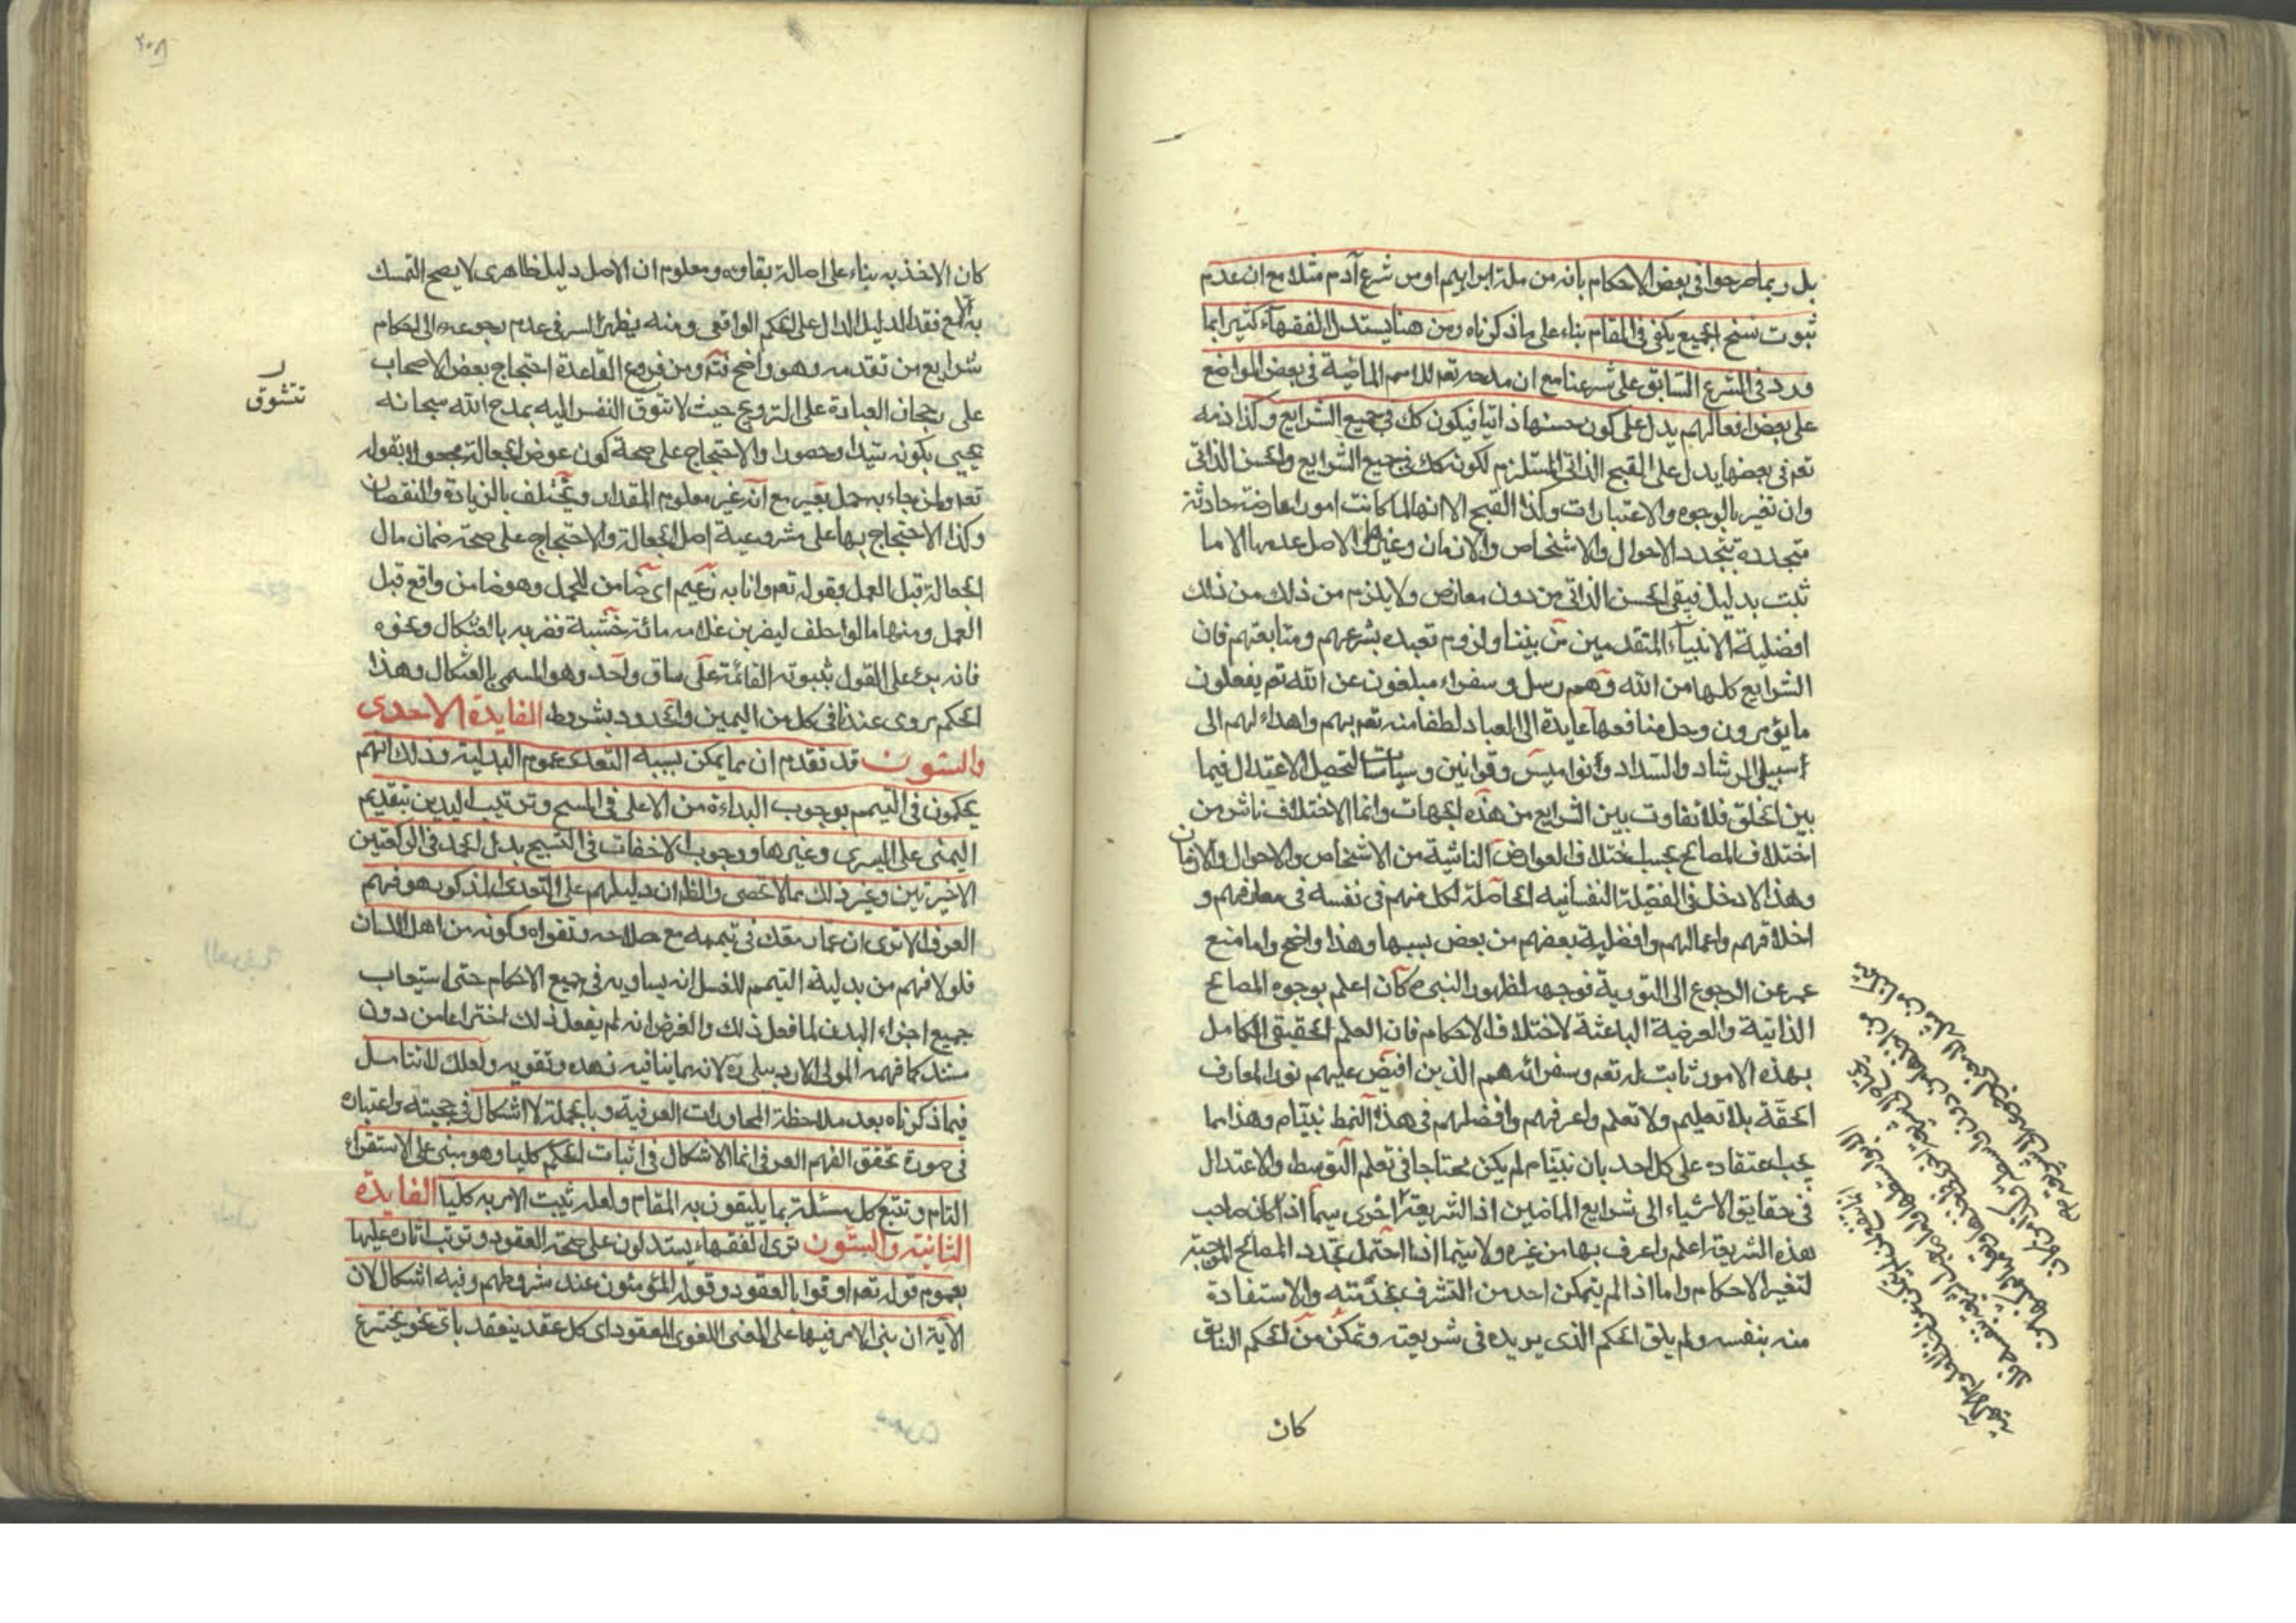 بل وربما صرحوا فى بعض الاحكام بانه من ملة ابراهيم او من شرع آدم مثلا مع ان عدم
ثبوت نسخ الجميع يكفى فى المقام بناء على ما ذكرناه ومن هنا يستدل الفقهآء كثيرا بما
ورد فى الشرع السابق على شرعنا مع ان مدحه تعم للامم الماضية فى بعض المواضع
على بعض افعالهم يدل على كون حسنها ذاتيا فيكون كك فى جميع الشرايع وكذا ذمه
تعم فى بعضها يدل على القبح الذاتى المستلزم لكونه كك فى جميع الشرايع والحسن الذاتى
وان تغير بالوجوه والاعتبارات وكذا القبح الا انها لما كانت امورا عارضة حادثة
متجددة بتجدد الاحوال والاشخاص والازمان وغيرها الاصل عدمها الا ما
ثبت بدليل فيبقى الحسن الذاتى من دون معارض ولا يلزم من ذلك من ذلك
افضلية الانبيآء المتقدمين من نبينا ولزوم تعبده بشرعهم ومتابعتهم فان
الشرايع كلها من الله وهم رسل وسفراء مبلغون عن الله تعم يفعلون
ما يؤمرون وجل منافعها عايدة الى العباد لطفا منه تعم بهم واهداء لهم الى
سبيل الرشاد والسداد وانواميس وقوانين وسياسات لتحصيل الاعتدال فيما
بين الخلق فلا تفاوت بين الشرايع من هذه الجهات وانما الاختلاف ناش من
اختلاف المصالح بحسب اختلاف العوارض الناشية من الاشخاص والاحوال والازمان
وهذا لا دخل فى الفضيلة النفسانيه الحاصلة لكل منهم فى نفسه فى معارفهم و
اخلاقهم واعمالهم وافضلية بعضهم من بعض بسببها وهذا واضح واما منع
عمر عن الرجوع الى التورية فوجهه لظهور النبى ص كان اعلم بوجوه المصالح
الذاتية والعرضية الباعثة لاختلاف الاحكام فان العلم الحقيقى الكامل
بهذه الامور ثابت له تعم وسفرائه هم الذين افيض عليهم نور المعارف
الحقة بلا تعليم ولا تعلم واعرفهم وافضلهم فى هذا النمط نبينا م وهذا مما
يجب اعتقاده على كل احد بان نبينا م لم يكن محتاجا فى تعلم التوسط والاعتدال
فى حقايق الاشياء الى شرايع الماضين اذ الشريعة اخرى سيما اذا كان صاحب
هذه الشريعة اعلم واعرف بها من غيره ولا سيما اذا احتمل تجدد المصالح الموجبة
لتغير الاحكام واما اذا لم يتمكن احد من التشرف بخدمته والاستفادة
منه بنفسه ولم يلق الحكم الذى يريده فى شريعته وتمكن من الحكم السابق
كان
كان الاخذ به بناء على اصالة بقاوه ومعلوم ان الاصل دليل ظاهرى لا يصح التمسك
به الا مع فقد الدليل الدال على الحكم الواقعى ومنه يظهر السر فى عدم رجوعه الى احكام
شرايع من تقدمه وهو واضح ومن فروع القاعدة احتجاج بعض الاصحاب
على رجحان العبادة على التزويج حيث لا تتوق النفس اليه بمدح الله سبحانه
تتشوق
يحيى بكونه سيدا وحصورا والاحتجاج على صحة كون عوض الجعالة مجهولا بقوله
تعم ولمن جاء به حمل بعير مع انه غير معلوم المقدار ويختلف بالزيادة والنقصان
وكذا الاحتجاج بها على مشروعية اصل الجعالة والاحتجاج على صحة ضمان مال
الجعالة قبل العمل بقوله تعم وانا به زعيم اى ضامن للحمل وهو ضامن واقع قبل
العمل ومنها ما لو احلف ليضربن غلامه مائة خشبة فضربه بالعثكال ونحوه
فانه برئ على القول بثبوته القائمة على ساق واحد وهو المسمى بالعثكال وهذا
الحكم مروى عندنا فى كل من اليمين والحدود بشروط الفايدة الاحدى
والستون قد تقدم ان مما يمكن بسببه التعدى عموم البدلية وذلك انهم
يحكمون فى التيمم بوجوب البداءة من الاعلى فى المسح وترتيب اليدين بتقديم
اليمنى على اليسرى وغيرها ووجوب الاخفات فى التسبيح بدل الحمد فى الركعتين
الاخيرتين وغير ذلك مما لا تحصى والظ ان دليلهم على التعدى المذكور هو فهم
العرف الا ترى ان عمار تمعك فى تيممه مع صلاحه وتقواه وكونه من اهل اللسان
فلولا فهم من بدلية التيمم للغسل انه يساويه فى جميع الاحكام حتى استيعاب
جميع اجزاء البدن لما فعل ذلك والفرض انه لم يفعل ذلك اختراعا من دون
مستند كما فهمه المولى الاردبيلى ره لانه مما ينافيه زهده وتقويه ولعلك لا تتامل
فيما ذكرناه بعد ملاحظة المحاورات العرفية وبالجملة لا اشكال فى حجيته واعتباره
فى صورة تحقق الفهم العرفى انما الاشكال فى اثبات الحكم كليا وهو مبنى على الاستقراء
التام وتتبع كل مسئلة بما يليقون به المقام ولعله ثبت الامر به كليا الفايدة
الثانية والستون ترى الفقهاء يستدلون على صحة العقود وترتب اثاره عليها
بعموم قوله تعم اوفوا بالعقود وقوله المؤمنون عند شروطهم وفيه اشكال لان
الآية ان بنى الامر فيها على المعنى اللغوى للعقود اى كل عقد ينعقد باى نحو يخترع